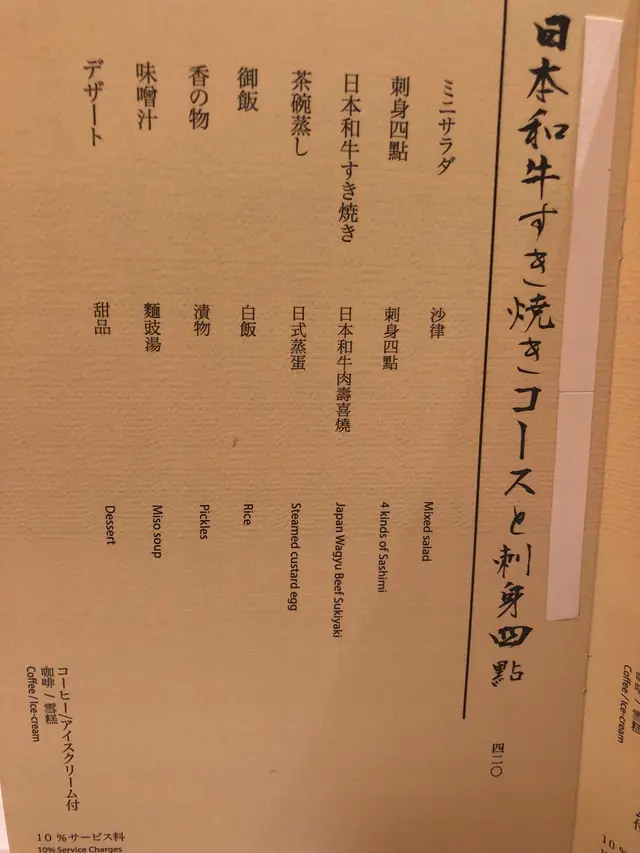 日本和牛すき焼きコースと刺身四點
四二〇
ミニサラダ
沙律
Mixed salad
刺身四點
刺身四點
4 kinds of Sashimi
日本和牛すき焼き
日本和牛肉壽喜燒
Japan Wagyu Beef Sukiyaki
茶碗蒸し
日式蒸蛋
Steamed custard egg
御飯
白飯
Rice
香の物
漬物
Pickles
味噌汁
麵豉湯
Miso soup
デザート
甜品
Dessert
コーヒー/アイスクリーム付
咖啡 / 雪糕
Coffee / Ice-cream
10 %サービス料
10% Service Charges
咖啡 / 雪糕
Coffee / Ice-cream
10%